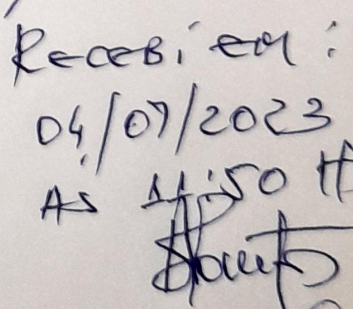 Recebi em:
04/07/2023
AS 11:50 H